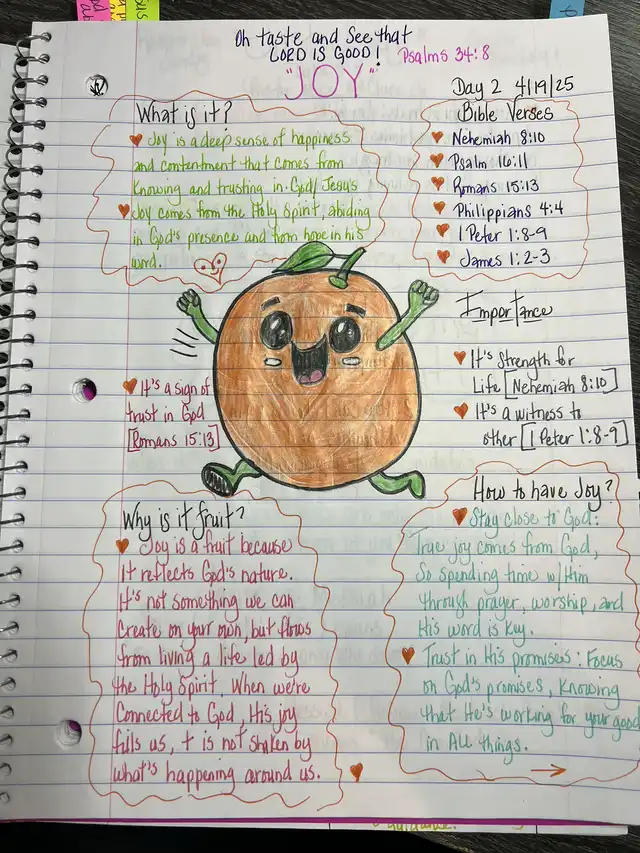 Oh taste and see that
LORD IS GOOD! Psalms 34:8
"JOY"
Day 2 4/19/25
What is it?
Joy is a deep sense of happiness
and contentment that comes from
Knowing and trusting in God/Jesus
Joy comes from the Holy Spirit, abiding
in God's presence and from hope in his
word.
Bible Verses
Nehemiah 8:10
Psalm 16:11
Romans 15:13
Philippians 4:4
1 Peter 1:8-9
James 1:2-3
Importance
It's Strength for
Life [Nehemiah 8:10]
It's a witness to
other [1 Peter 1:8-9]
It's a sign of
trust in God
[Romans 15:13]
Why is it fruit?
Joy is a fruit because
It reflects God's nature.
It's not something we can
Create on your own, but flows
from living a life led by
the Holy Spirit. When we're
Connected to God, His joy
fills us, + is not shaken by
what's happening around us.
How to have Joy?
Stay close to God:
True joy comes from God,
So spending time w/Him
through prayer, worship, and
His word is key.
Trust in His promises: Focus
on God's promises, Knowing
that He's working for your good
in ALL things.